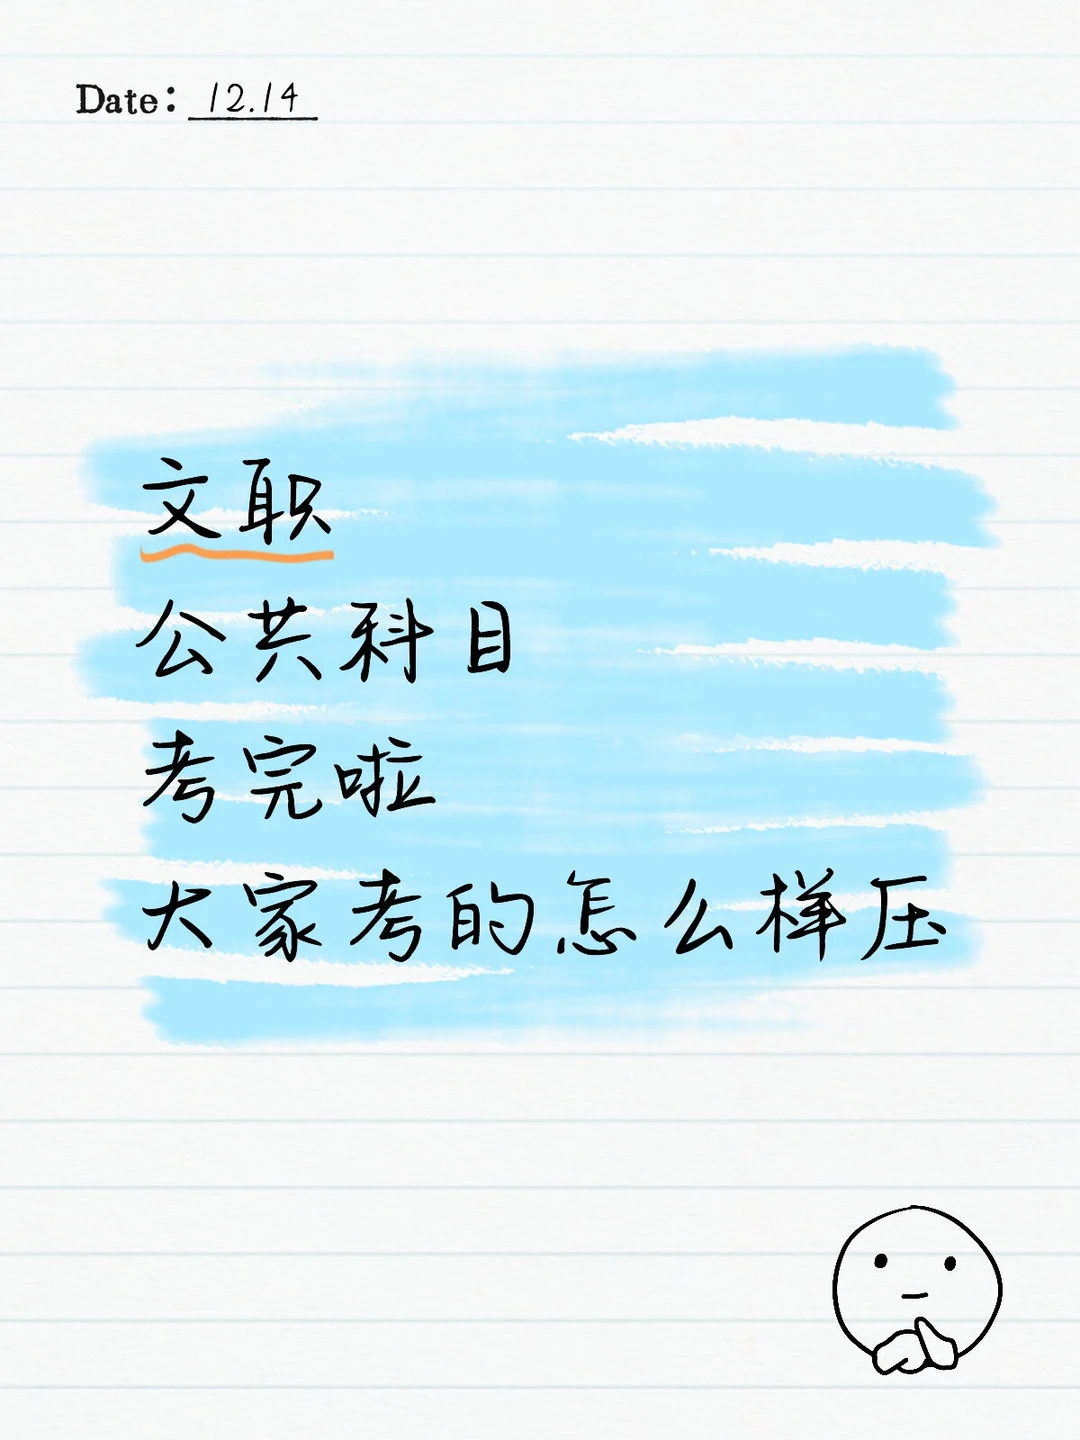 Date: 12.14
文职
公共科目
考完啦
大家考的怎么样压